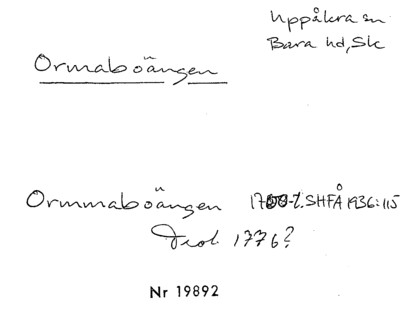 Uppåkra sn
Bara hd, Sk
Ormaboängen
Ormmaboängen 1700-t. SHFÅ 1936:115
Trol. 1776?
Nr 19892